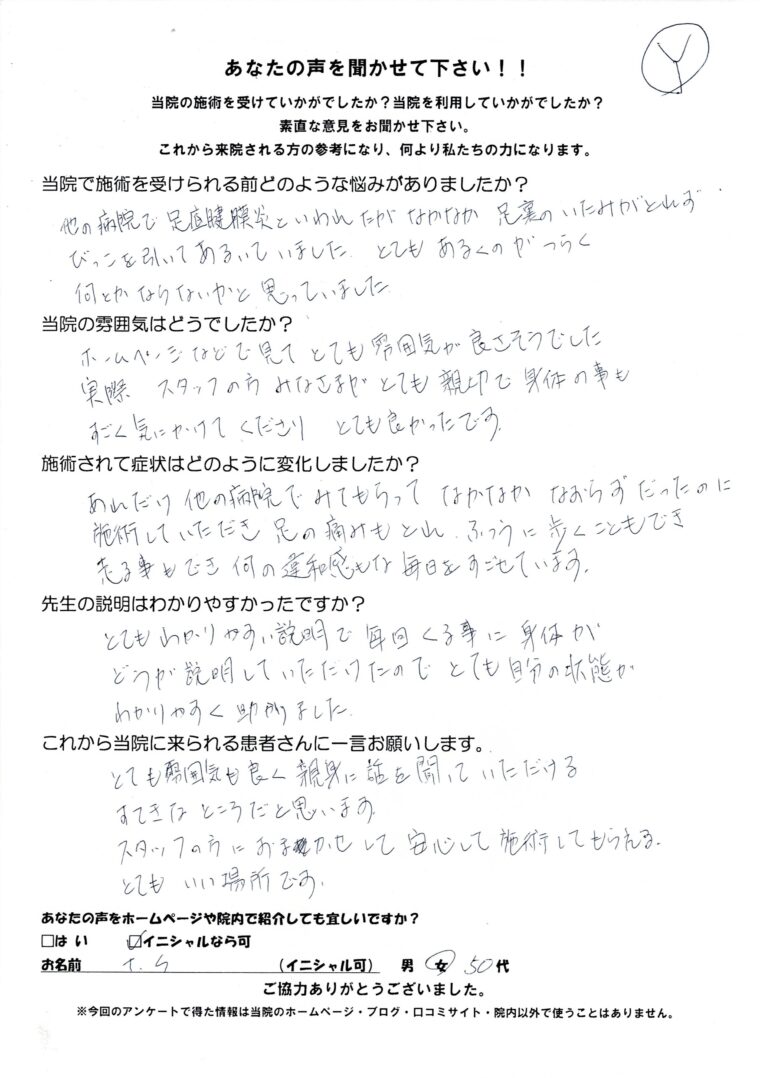 Y
あなたの声を聞かせて下さい！！
当院の施術を受けていかがでしたか？当院を利用していかがでしたか？
素直な意見をお聞かせ下さい。
これから来院される方の参考になり、何より私たちの力になります。
当院で施術を受けられる前どのような悩みがありましたか？
他の病院で 足底腱膜炎といわれたが なかなか 足裏の いたみがとれず
びっこを引いて あるいていました. とても あるくのが つらく
何とか ならないかと 思っていました.
当院の雰囲気はどうでしたか？
ホームページなどで見て とても 雰囲気が 良さそうでした
実際 スタッフの方 みなさまが とても 親切で 身体の事も
すごく 気にかけて くださり とても良かったです.
施術されて症状はどのように変化しましたか？
あれだけ 他の病院で みてもらって なかなか なおらずだったのに
施術していただき 足の痛みもとれ. ふつうに 歩くこともでき
走る事もでき 何の 違和感もな 毎日を すごせています.
先生の説明はわかりやすかったですか？
とても わかりやすい説明で 毎回 くる事に 身体が
どうか 説明して いただけたので とても 自分の状態が
わかりやすく 助かりました.
これから当院に来られる患者さんに一言お願いします。
とても雰囲気も良く 親身に 話を聞いていただける
すてきな ところだと思います.
スタッフの方に おまかせして 安心して 施術してもらえる.
とても いい場所です.
あなたの声をホームページや院内で紹介しても宜しいですか？
□は い ☑イニシャルなら可
お名前 T. S （イニシャル可） 男 女 50代
ご協力ありがとうございました。
※今回のアンケートで得た情報は当院のホームページ・ブログ・口コミサイト・院内以外で使うことはありません。